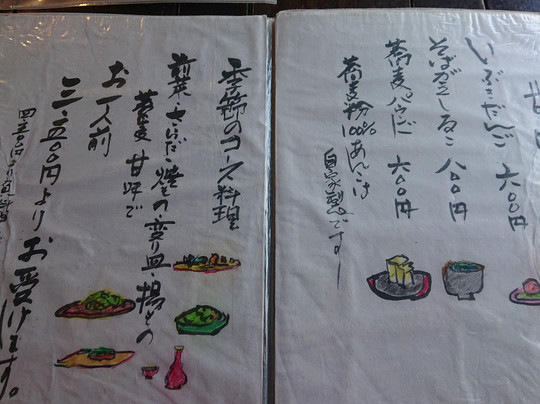 甘味
いぶきだんご 六〇〇円
そばがきしるこ 八〇〇円
蕎麦パウンド 六〇〇円
蕎麦粉100%あんこは
自家製です
季節のコース料理
前菜・さしみ・焼もの・変り皿・揚もの
蕎麦 甘味で
お一人前
三、五〇〇円より お受けします。